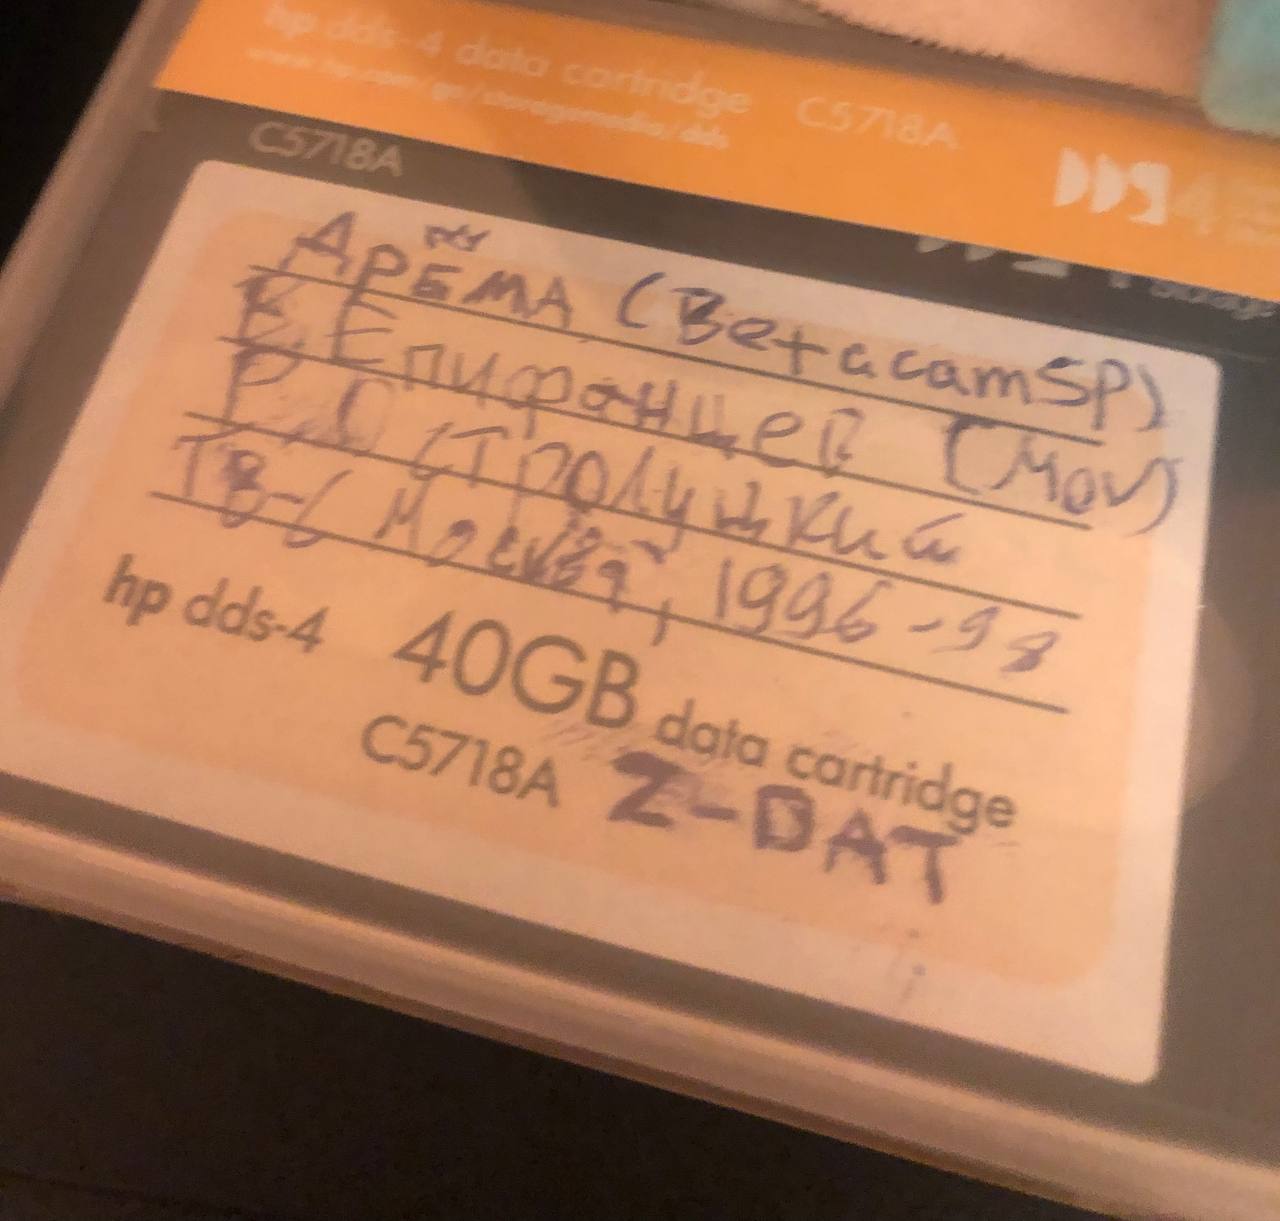 hp dds-4 data cartridge C5718A
www.hp.com/go/storagemedia/dds
DDS 4
C5718A
АРЁМА (BetacamSP)
В. Епифанцев (MOV)
P.O Стролушкий
ТВ-6 Москва, 1996-98
hp dds-4 40GB data cartridge
C5718A Z-DAT